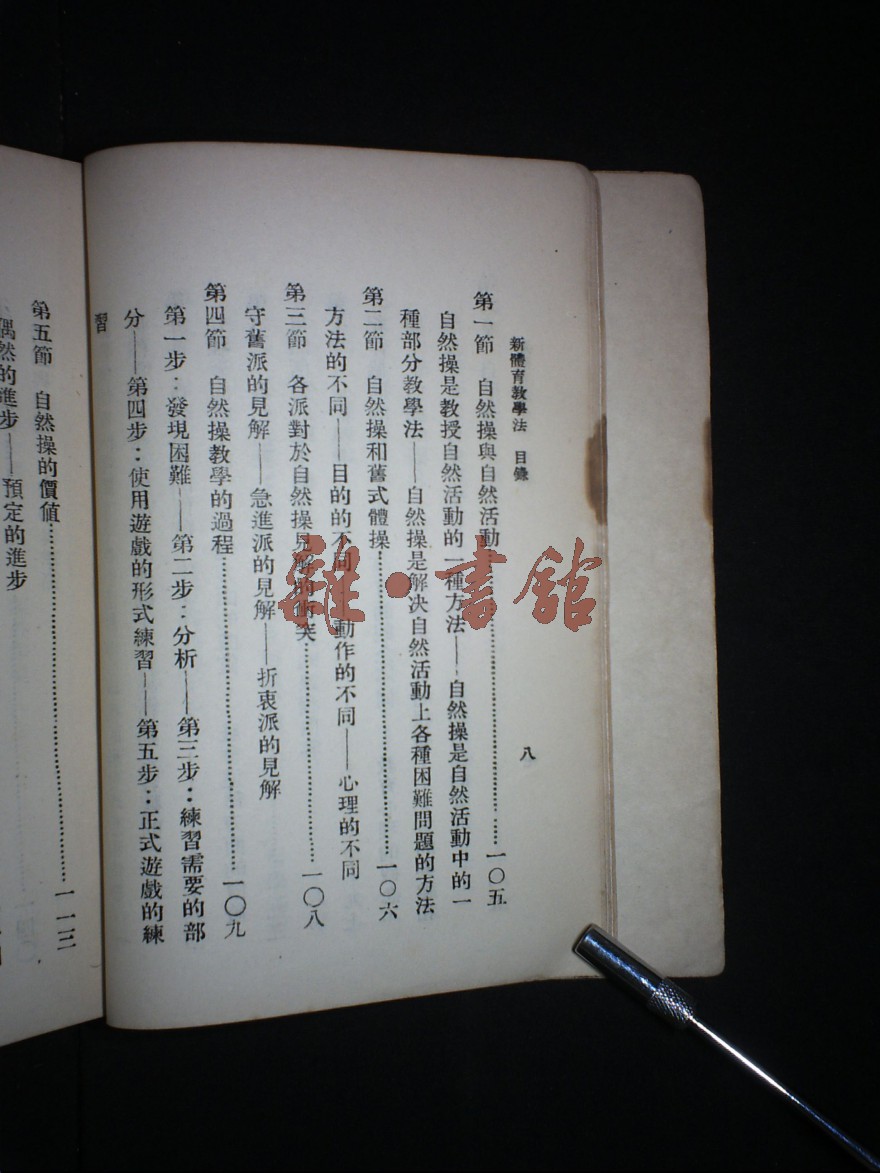 新體育教學法　目錄
八
第一節　自然操與自然活動……一〇五
自然操是教授自然活動的一種方法——自然操是自然活動中的一
種部分教學法——自然操是解决自然活動上各種困難問題的方法
第二節　自然操和舊式體操……一〇六
方法的不同——目的的不同——動作的不同——心理的不同
第三節　各派對於自然操見解的衝突……一〇八
守舊派的見解——急進派的見解——折衷派的見解
第四節　自然操教學的過程……一〇九
第一步：發現困難——第二步：分析——第三步：練習需要的部
分——第四步：使用遊戲的形式練習——第五步：正式遊戲的練
習
第五節　自然操的價値……一一三
偶然的進步——預定的進步
雜·書館